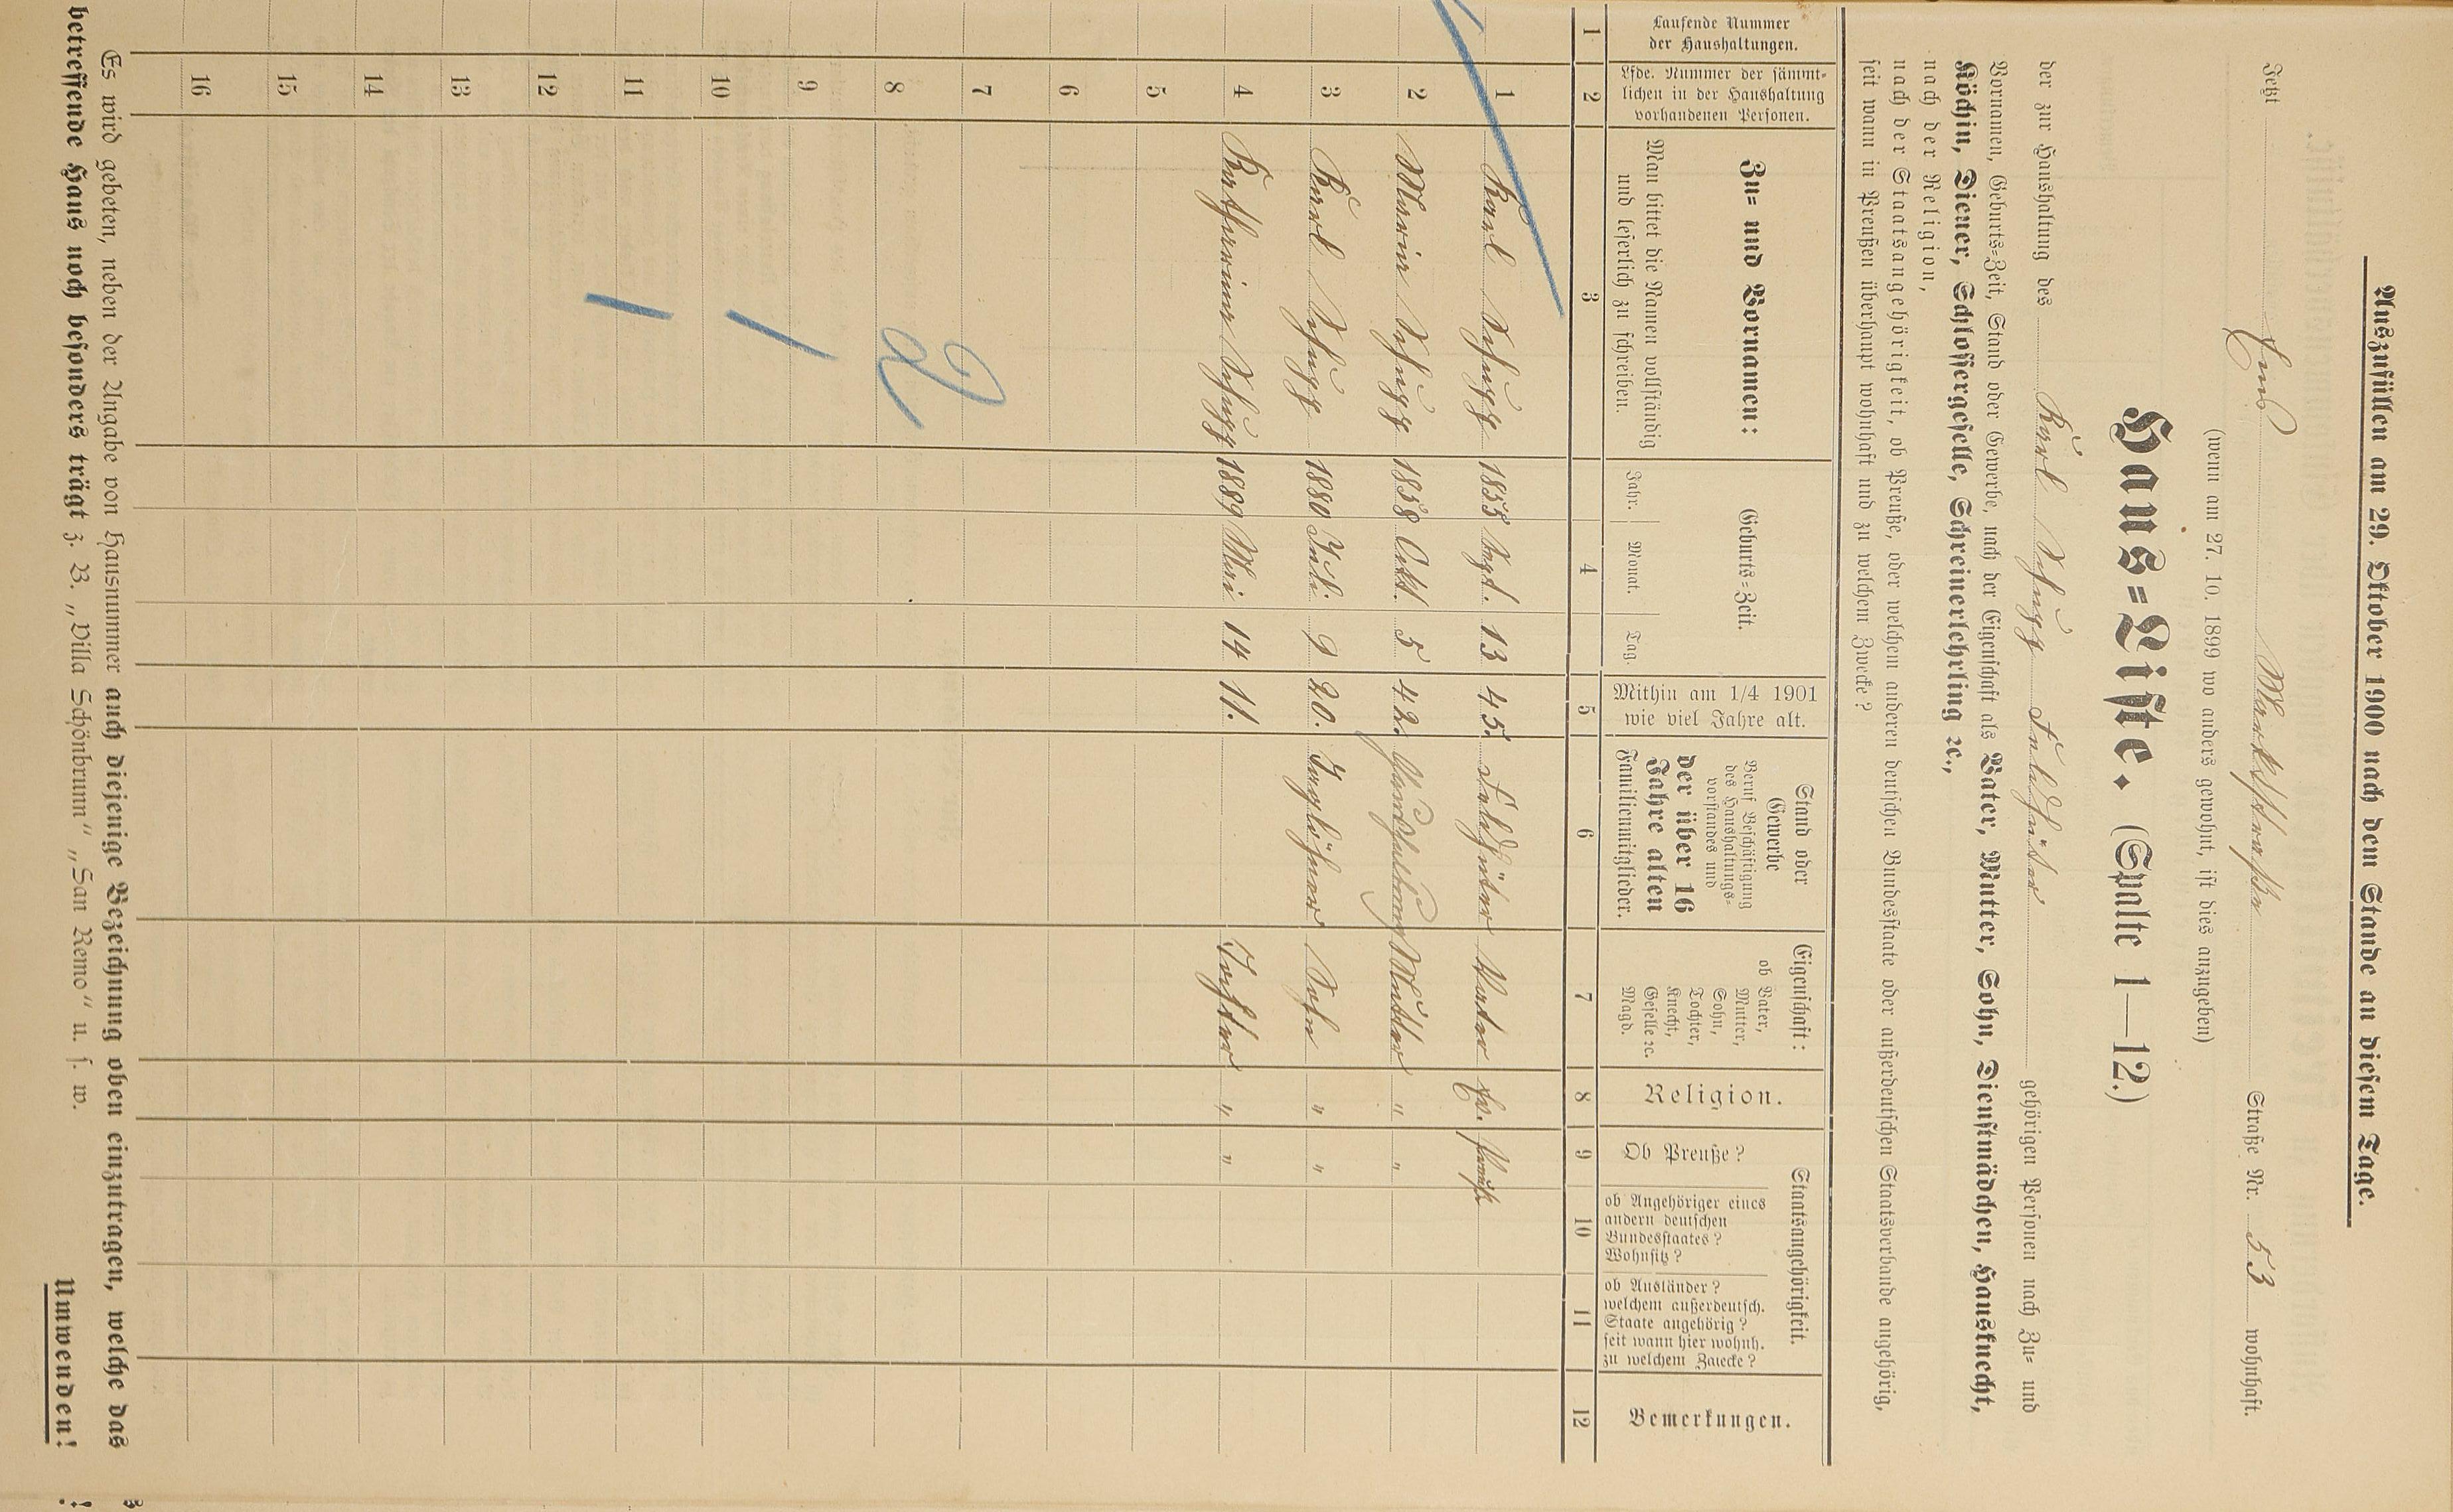 Auszufüllen am 29. Oktober 1900 nach dem Stande an diesem Tage.
Jetzt Ems Marktstraße Straße Nr. 53 wohnhaft.
(wenn am 27. 10. 1899 wo anders gewohnt, ist dies anzugeben)
Haus=Liste. (Spalte 1—12.)
der zur Haushaltung des Karl Schupp Feldhüter gehörigen Personen nach Zu= und
Vornamen, Geburts=Zeit, Stand oder Gewerbe, nach der Eigenschaft als Vater, Mutter, Sohn, Dienstmädchen, Hausknecht,
Köchin, Diener, Schlossergeselle, Schreinerlehrling ꝛc.,
nach der Religion,
nach der Staatsangehörigkeit, ob Preuße, oder welchem anderen deutschen Bundesstaate oder außerdeutschen Staatsverbande angehörig,
seit wann in Preußen überhaupt wohnhaft und zu welchem Zwecke?
Laufende Nummer
der Haushaltungen.
Lfde. Nummer der sämmt-
lichen in der Haushaltung
vorhandenen Personen.
Zu= und Vornamen:
Man bittet die Namen vollständig
und leserlich zu schreiben.
Geburts=Zeit.
Jahr. Monat. Tag.
Mithin am 1/4 1901
wie viel Jahre alt.
Stand oder
Gewerbe
Beruf Beschäftigung
des Haushaltungs-
vorstandes und
der über 16
Jahre alten
Familienmitglieder.
Eigenschaft:
ob Vater,
Mutter,
Sohn,
Tochter,
Knecht,
Geselle ꝛc.
Magd.
Religion.
Staatsangehörigkeit.
Ob Preuße?
ob Angehöriger eines
andern deutschen
Bundesstaates?
Wohnsitz?
ob Ausländer?
welchem außerdeutsch.
Staate angehörig?
seit wann hier wohnh.
zu welchem Zwecke?
Bemerkungen.
1 2 3 4 5 6 7 8 9 10 11 12
1 Karl Schupp 1855 Sept. 13 45. Feldhüter Vater Ev. Preuße
2 Maria Schupp 1858 Okt. 5 42. Mutter " "
3 Karl Schupp 1880 Juli 9 20. Taglöhner Sohn " "
4 Katharina Schupp 1889 Mai 14 11. Tochter " "
5
6
7
8 2
9
10
11
12
13
14
15
16
Es wird gebeten, neben der Angabe von Hausnummer auch diejenige Bezeichnung oben einzutragen, welche das
betreffende Haus noch besonders trägt z. B. „Villa Schönbrunn“ „San Remo“ u. s. w.
Umwenden!